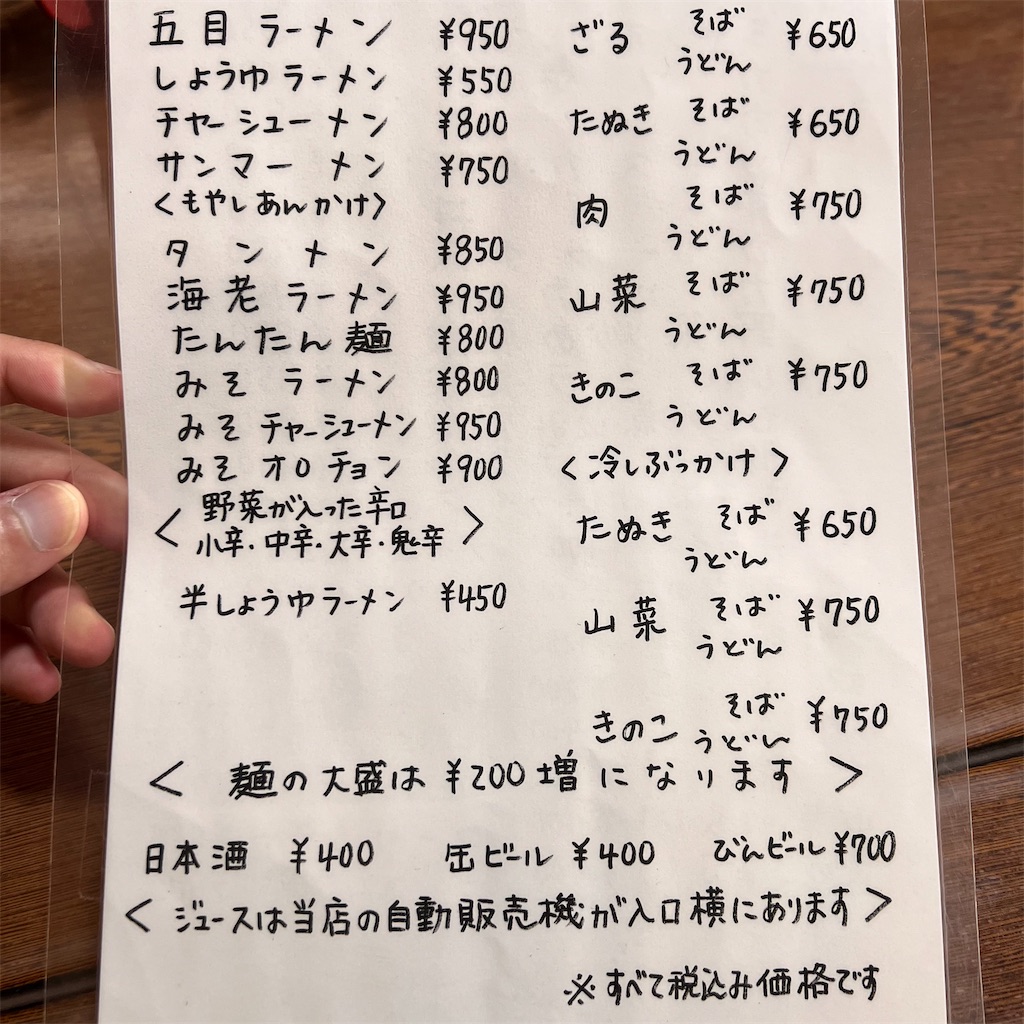 五目ラーメン ¥950
しょうゆラーメン ¥550
チャーシューメン ¥800
サンマーメン ¥750
<もやしあんかけ>
タンメン ¥850
海老ラーメン ¥950
たんたん麺 ¥800
みそラーメン ¥800
みそチャーシューメン ¥950
みそオロチョン ¥900
<野菜が入った辛口
小辛・中辛・大辛・鬼辛>
半しょうゆラーメン ¥450
ざる そば ¥650
うどん
たぬき そば ¥650
うどん
肉 そば ¥750
うどん
山菜 そば ¥750
うどん
きのこ そば ¥750
うどん
<冷しぶっかけ>
たぬき そば ¥650
うどん
山菜 そば ¥750
うどん
きのこ そば ¥750
うどん
<麺の大盛は¥200増になります>
日本酒 ¥400 缶ビール ¥400 びんビール ¥700
<ジュースは当店の自動販売機が入口横にあります>
※すべて税込み価格です